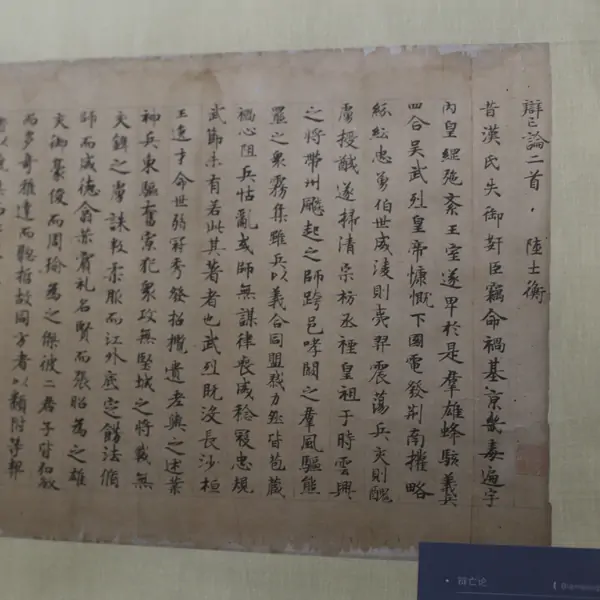 辯亡論二首， 陸士衡
昔漢氏失御奸臣竊命禍基京畿毒遍宇
內皇綱弛紊王室遂卑於是羣雄蜂駭義兵
四合吳武烈皇帝慷慨下國電發荆南權略
紛紜忠勇伯世威淩則夷羿震蕩兵交則醜
虜授馘遂掃清宗祊丞禋皇祖于時雲興
之將帶州飈起之師跨邑哮闞之羣風驅熊
羆之衆霧集雖兵以義合同盟戮力然皆苞藏
禍心阻兵怙亂或師無謀律喪威稔寇忠規
武節未有若此其著者也武烈既沒長沙桓
王逸才命世弱冠秀發招攬遺老與之述業
神兵東驅奮寡犯衆攻無堅城之將戰無
交鋒之虜誅叛柔服而江外底定飭法脩
師而威德翕葉賓礼名賢而張昭爲之雄
交御豪俊而周瑜爲之傑彼二君子皆弘敏
而多奇雅達而聰哲故同方者以類附等契
辩亡论